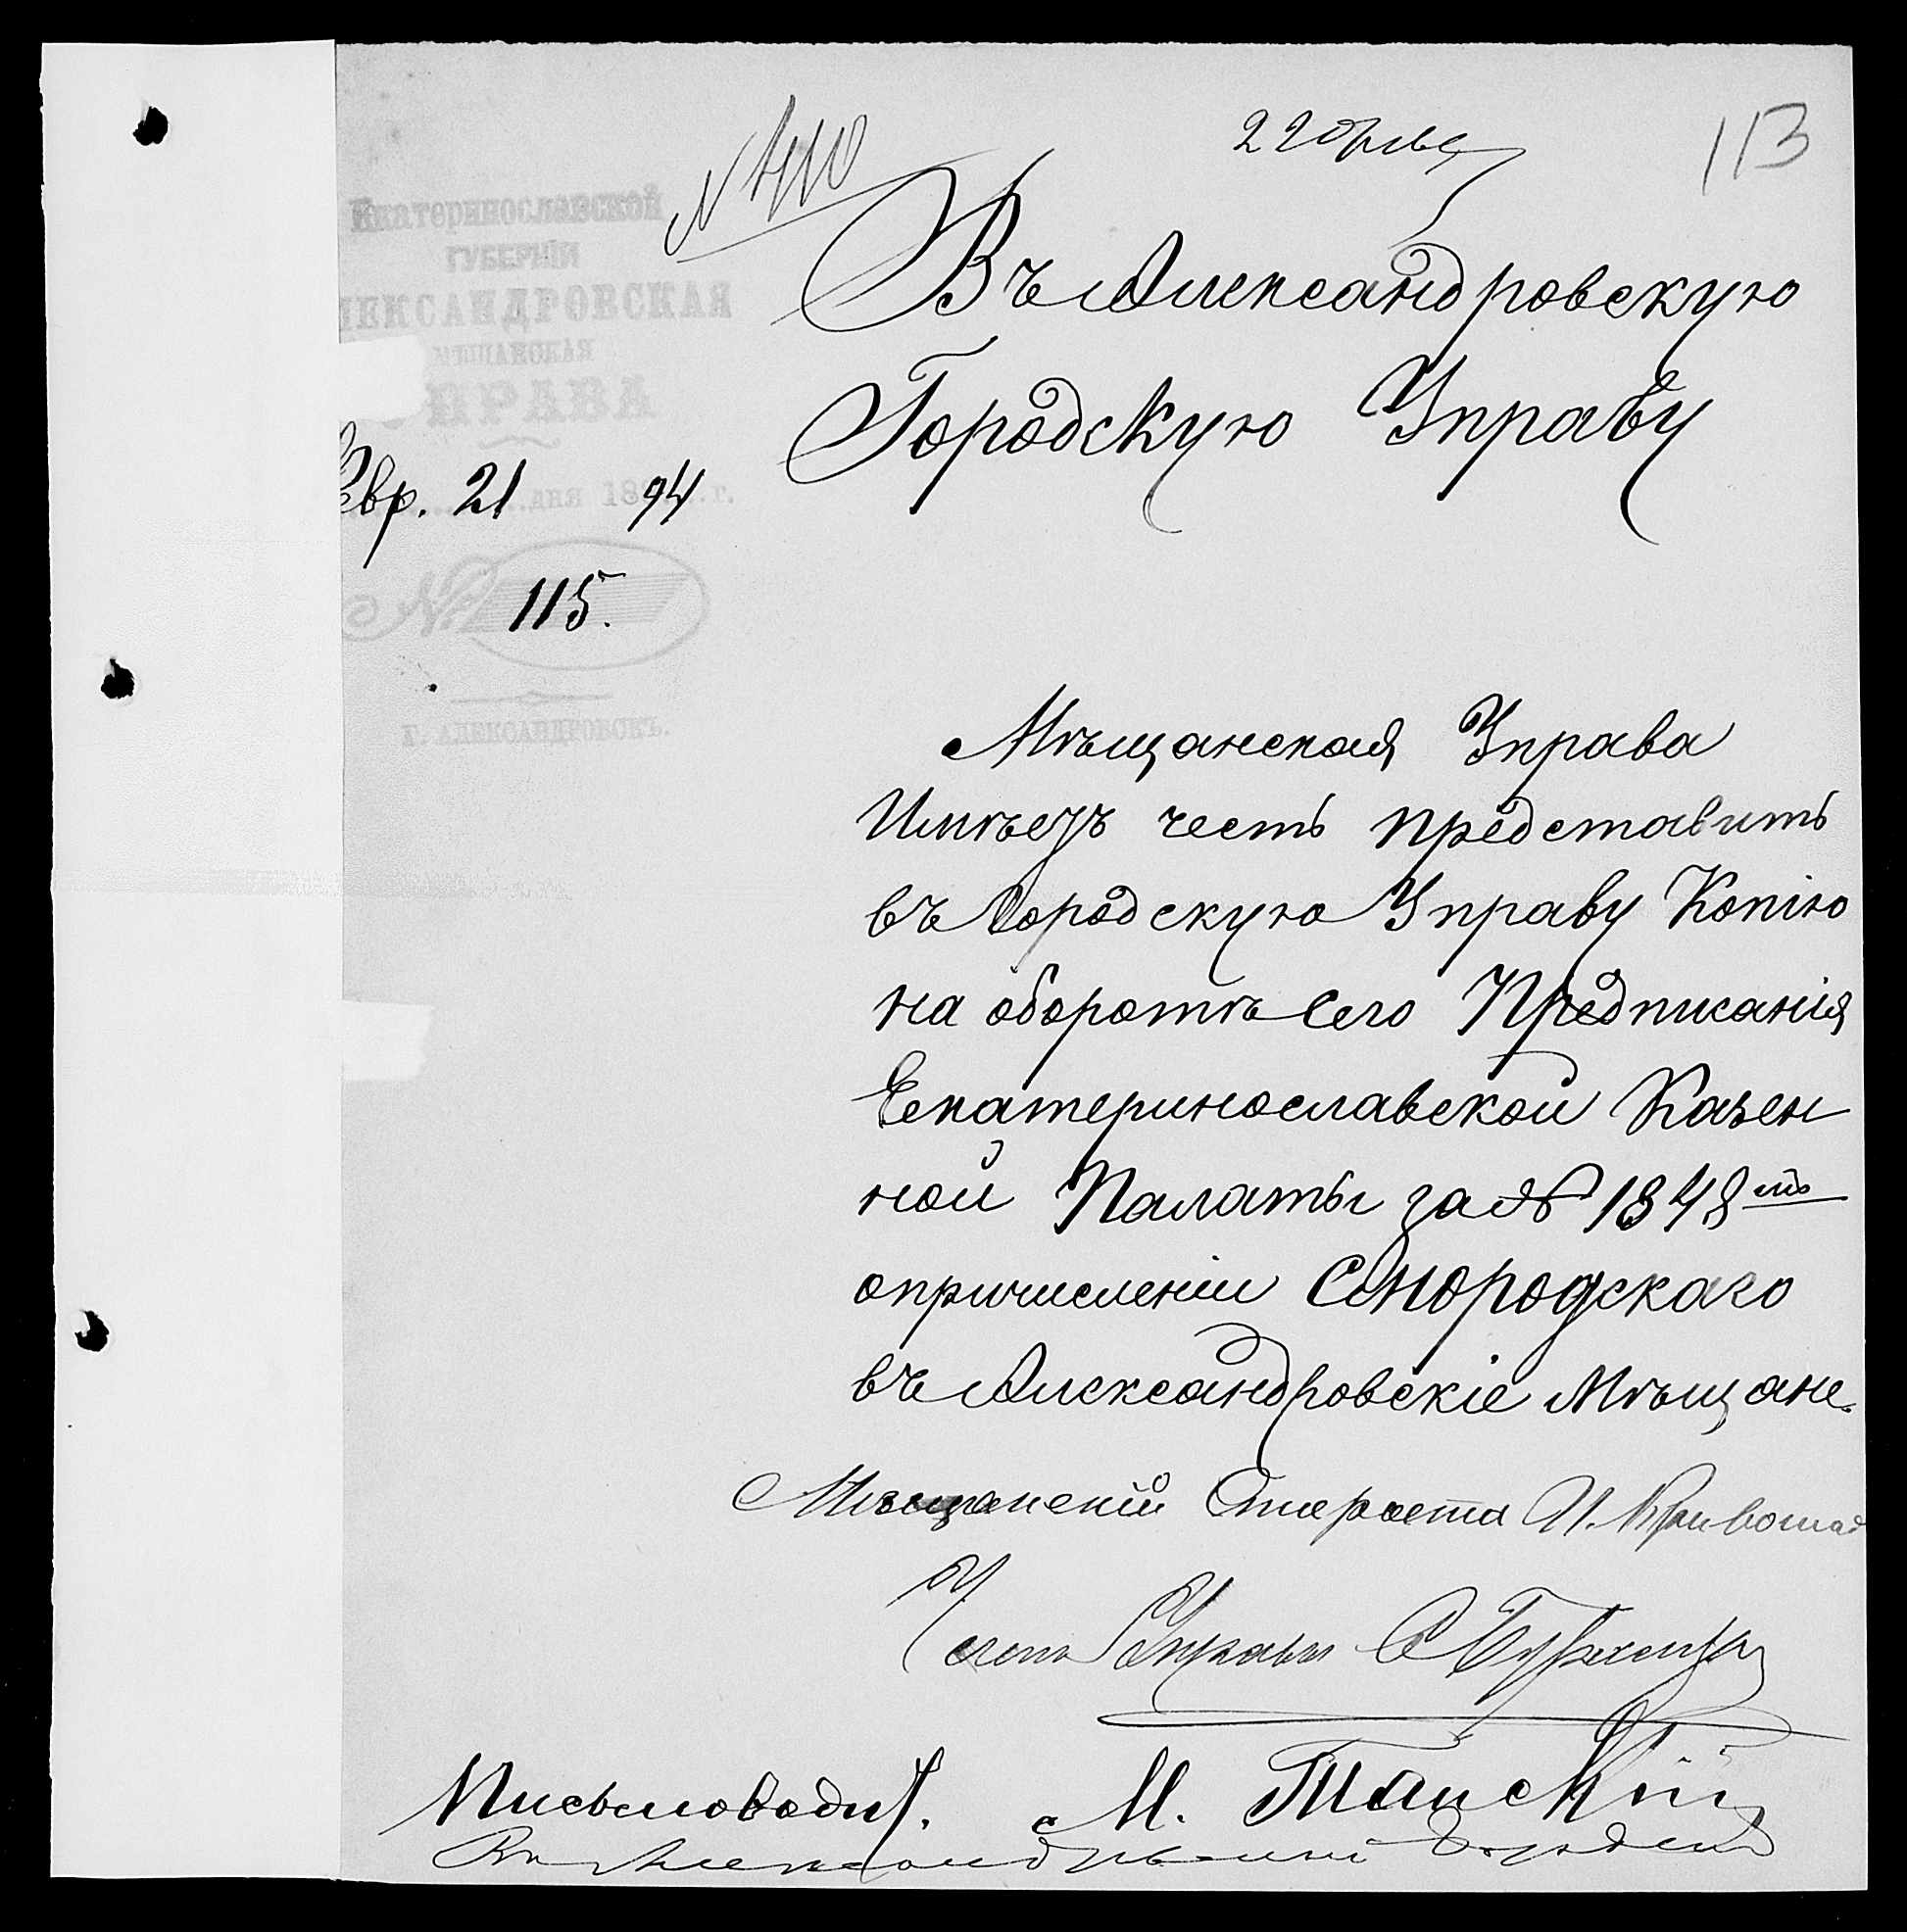 113
№ 410
22 февр
Екатеринославской
ГУБЕРНІИ
ЛЕКСАНДРОВСКАЯ
МѢЩАНСКАЯ
УПРАВА
Февр. 21 дня 1894 г.
№ 115.
Г. АЛЕКСАНДРОВСКЪ.
Въ Александровскую
Городскую Управу
Мѣщанская Управа
Имѣетъ честь представить
въ Городскую Управу Копію
на оборотѣ сего Предписанія
Екатеринославской Казен
ной Палаты за № 1848
опричисленіи Снородскаго
въ Александровскіе Мѣщане.
Мѣщанскій Староста И.
Членъ Управы С
Писмоводит. М. Танскій